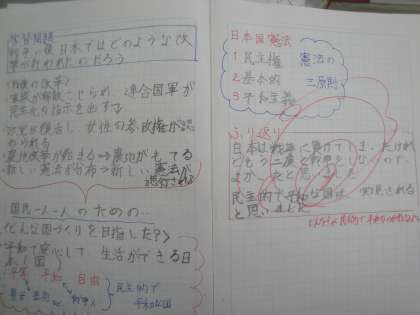 学習問題
戦争の後日本ではどのような改
革が行われたのだろう
(戦後の改革)
軍隊が解散させられ、連合国軍が
民主化の指示を出する
政党が復活し、女性の参政権が認
められる
農地改革が始まる⇒農地がもてる
新しい憲法が公布⇒新しい憲法が
国民一人一人のための…
どんな国づくりを目指した?>
平和で安心して 生活ができる日
本(国)
平等 平和 自由
民主的で
平和な国
日本国憲法
1 民主権
2 基本的
3 平和主義
憲法の
三原則
ふり返り
日本は戦争に負けてしまったけれ
どもう二度と戦争をしないので、
よかったと思いました
民主的で平和な国は 実現される
と思いました